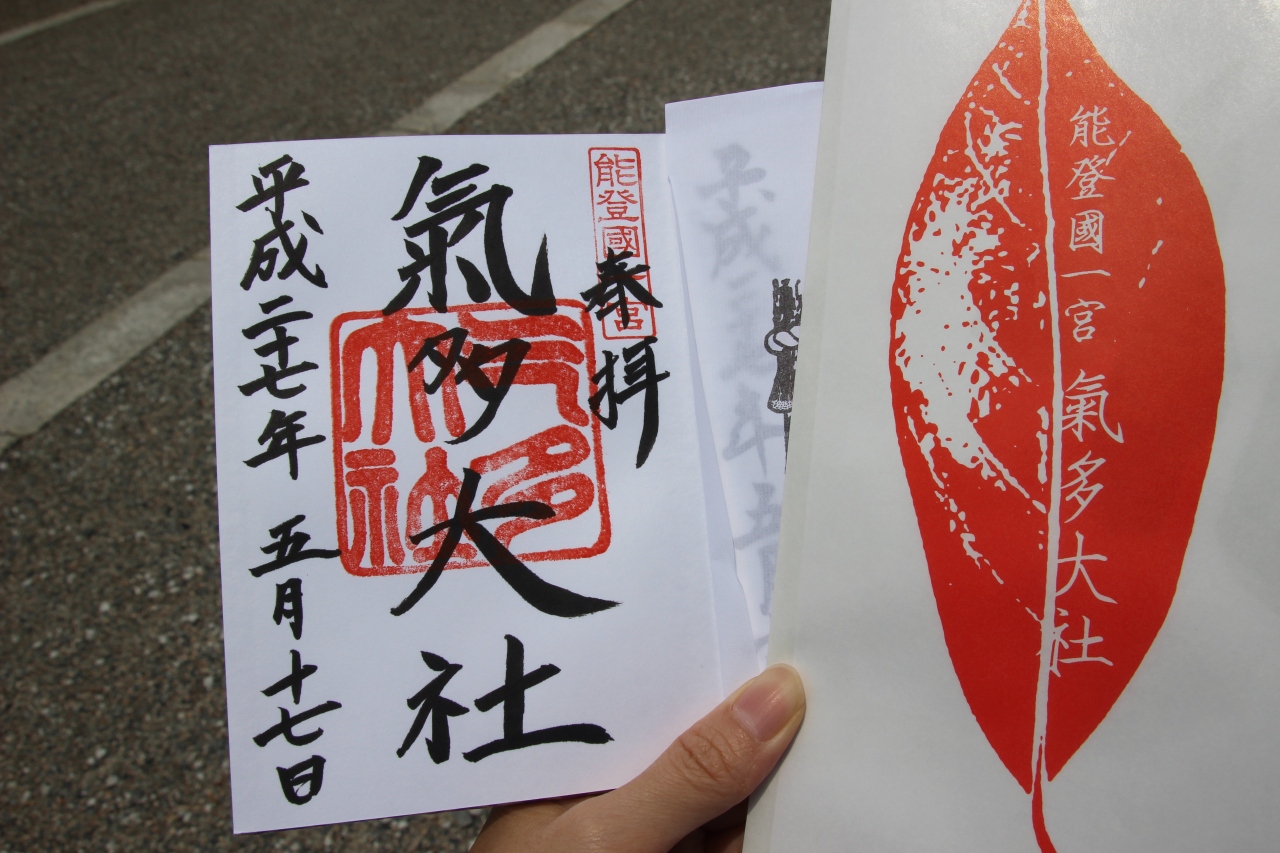 能登國一宮 氣多大社
能登國一宮
奉拝
氣多大社
气多
大社
平成二十七年 五月十七日